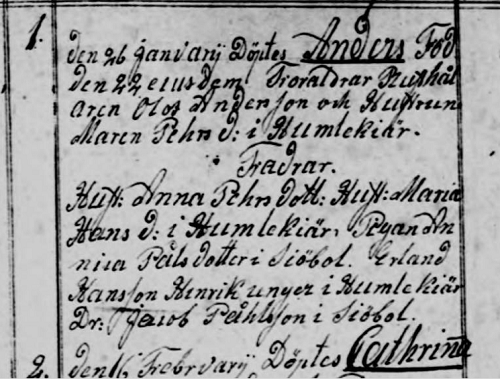 1. Den 26 Janvarij Döptes Anders Föd
den 22 eiusdem Förälldrar Rushål
aren Olof Anderson och Hustrun
Maren Pehrs d: i Humlekiär.
Fadrar.
Hust: Anna Pehrs dott: Hust: Maria
Hans d: i Humlekiär. Pigan An
nica Påls dotter i Siöbol. Erland
Hansson Henrik unger i Humlekiär
Dr: Jacob Påhlsson i Siöbol.
2. den 16 Febrvarij Döptes Cathrina